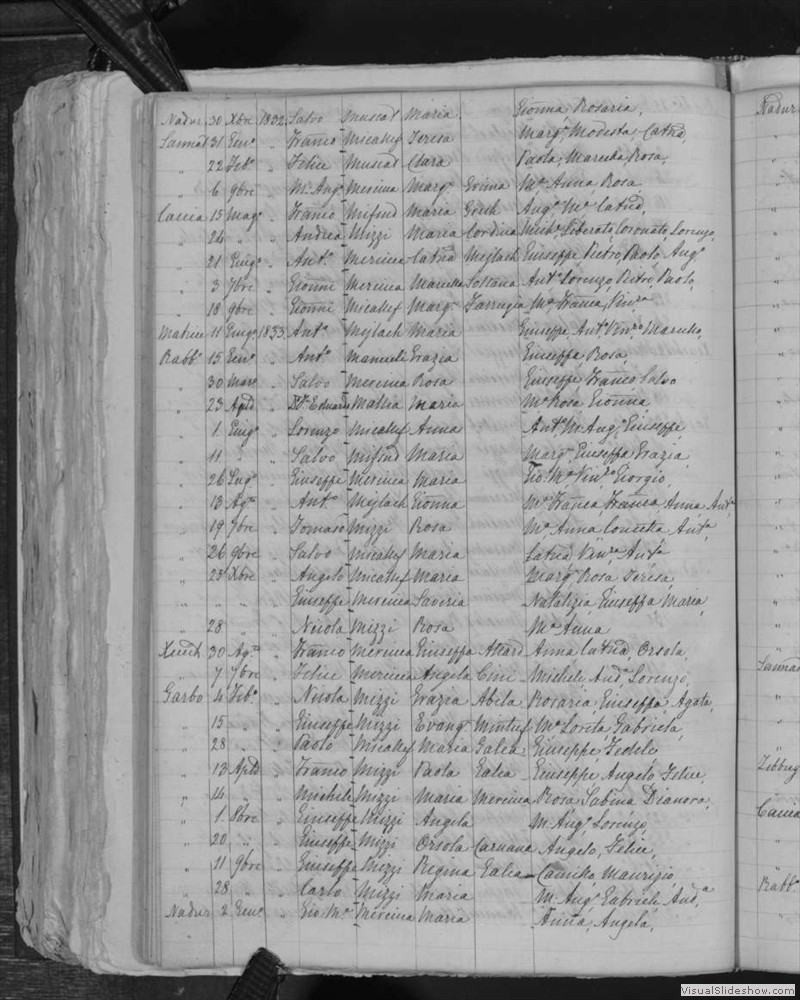 Nadur 30 Xbre 1832 Salvo Muscat Maria Gionna Rosaria,
Sannat 31 Gen° " Franco Micallef Teresa Marg^a Modesta, Catna,
" 22 Feb° " Felice Muscat Clara Paola, Rosa,
" 6 9bre " M. Ang° Mercieca Marg^a M^a Anna Rosa
Caccia 15 Mag° " Franco Mifsud Maria Grech Ang^a M^a Catna,
" 24 " " Andrea Mizzi Maria Cordina Liberata, Coronata, Lorenzo,
" 21 Giug° " Ant° Mercieca Catna Mejlach Giuseppe Pietro, Paolo, Ang°
" 3 7bre " Gionni Mercieca Soltana Ant° Lorenzo, Pietro, Paolo,
" 18 9bre " Gionni Micallef Marg^a Farrugia M^a Franca, Vin^za
Matrice 11 Giug° 1833 Ant° Mejlach Maria Giuseppe, Ant° Vin^zo
Rabb° 15 Gen° " Ant° Manueli Grazia Giuseppa, Rosa,
" 30 Mar° " Salvo Mercieca Rosa Giuseppe Franco Salvo
" 23 Aple " D^r Eduardo Mattia Maria M^a Rosa Gionna,
" 1 Giug° " Lorenzo Micallef Anna Ant° M. Ang° Giuseppe,
" 11 " " Salvo Mifsud Maria Marg^a Giuseppa Grazia,
" 26 Lug° " Giuseppe Mercieca Maria Gio: M^a Vin^zo Giorgio,
" 13 Ag^to " Ant° Mejlach Gionna M^a Franca Franca Anna, Ant^a
" 19 7bre " Tomaso Mizzi Rosa M^a Anna Concetta Ant^a
" 26 9bre " Salvo Micallef Maria Catna Vin^za Ant^a
" 23 Xbre " Angelo Micallef Maria Marg^a Rosa Teresa,
" " " " Giuseppe Mercieca Saveria Natalizia Giuseppa Maria,
" 28 " " Nicola Mizzi Rosa M^a Anna
30 Ag^to " Franco Mercieca Giuseppa Attard Anna Catna Orsola,
" 7 7bre " Felice Mercieca Angela Cini Michele And^a Lorenzo,
Garbo 4 Feb° " Nicola Mizzi Grazia Abela Rosaria Giuseppa, Agata,
" 15 " " Giuseppe Mizzi Evang^a Mintuf M^a Loreta, Gabriela,
" 28 " " Paolo Micallef Maria Galea Giuseppe, Fedele
" 13 Aple " Franco Mizzi Paola Galea Giuseppe, Angelo, Felice,
" 14 " " Michele Mizzi Maria Mercieca Rosa, Sabina Dianora,
" 1 8bre " Giuseppe Mizzi Angela M. Ang° Lorenzo,
" 20 " " Giuseppe Mizzi Orsola Caruana Angelo, Felice,
" 11 9bre " Giuseppe Mizzi Regina Galea Camillo, Maurizio,
" 28 " " Carlo Mizzi Maria M. Ang° Gabriele And^a
Nadur 2 Gen° " Gio M^a Mercieca Maria Anna, Angela,
Nadur
Sannat
Zebbug
Caccia
Rabb°
VisualSlideshow.com